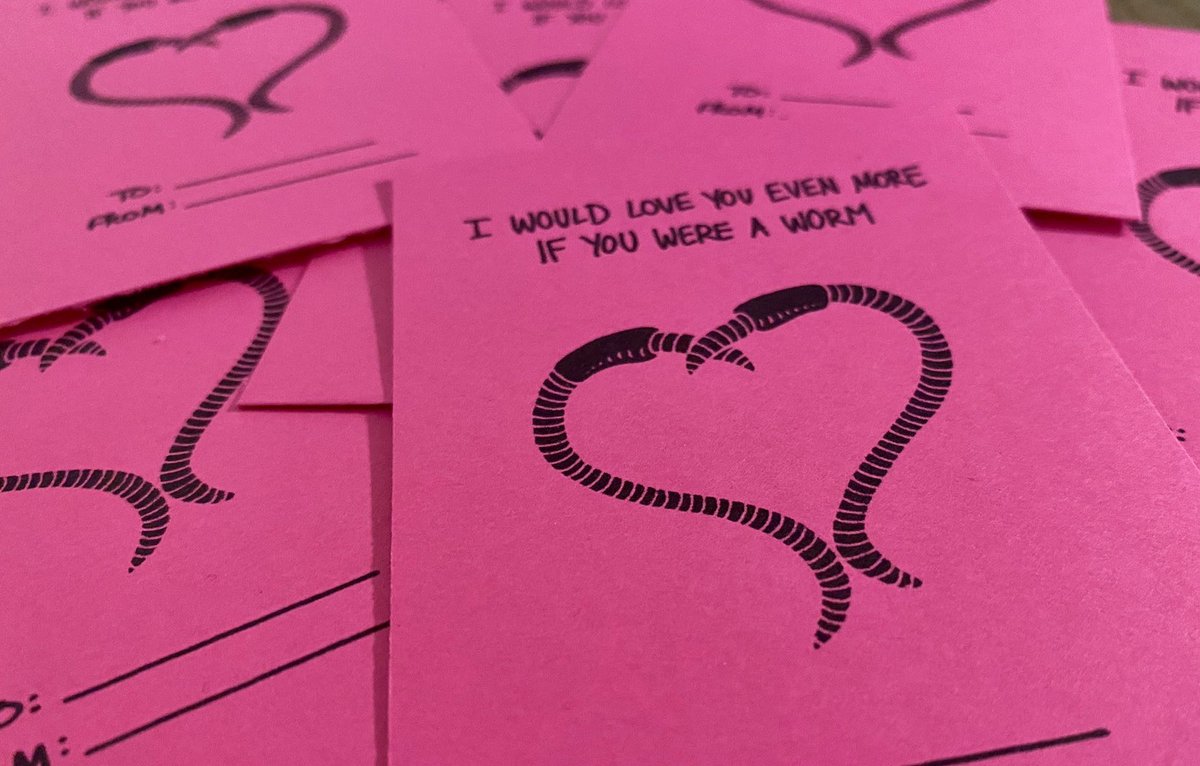 TO:
FROM:
TO:
FROM:
I WO
IF
I WOULD LOVE YOU EVEN MORE
IF YOU WERE A WORM
O:
M: